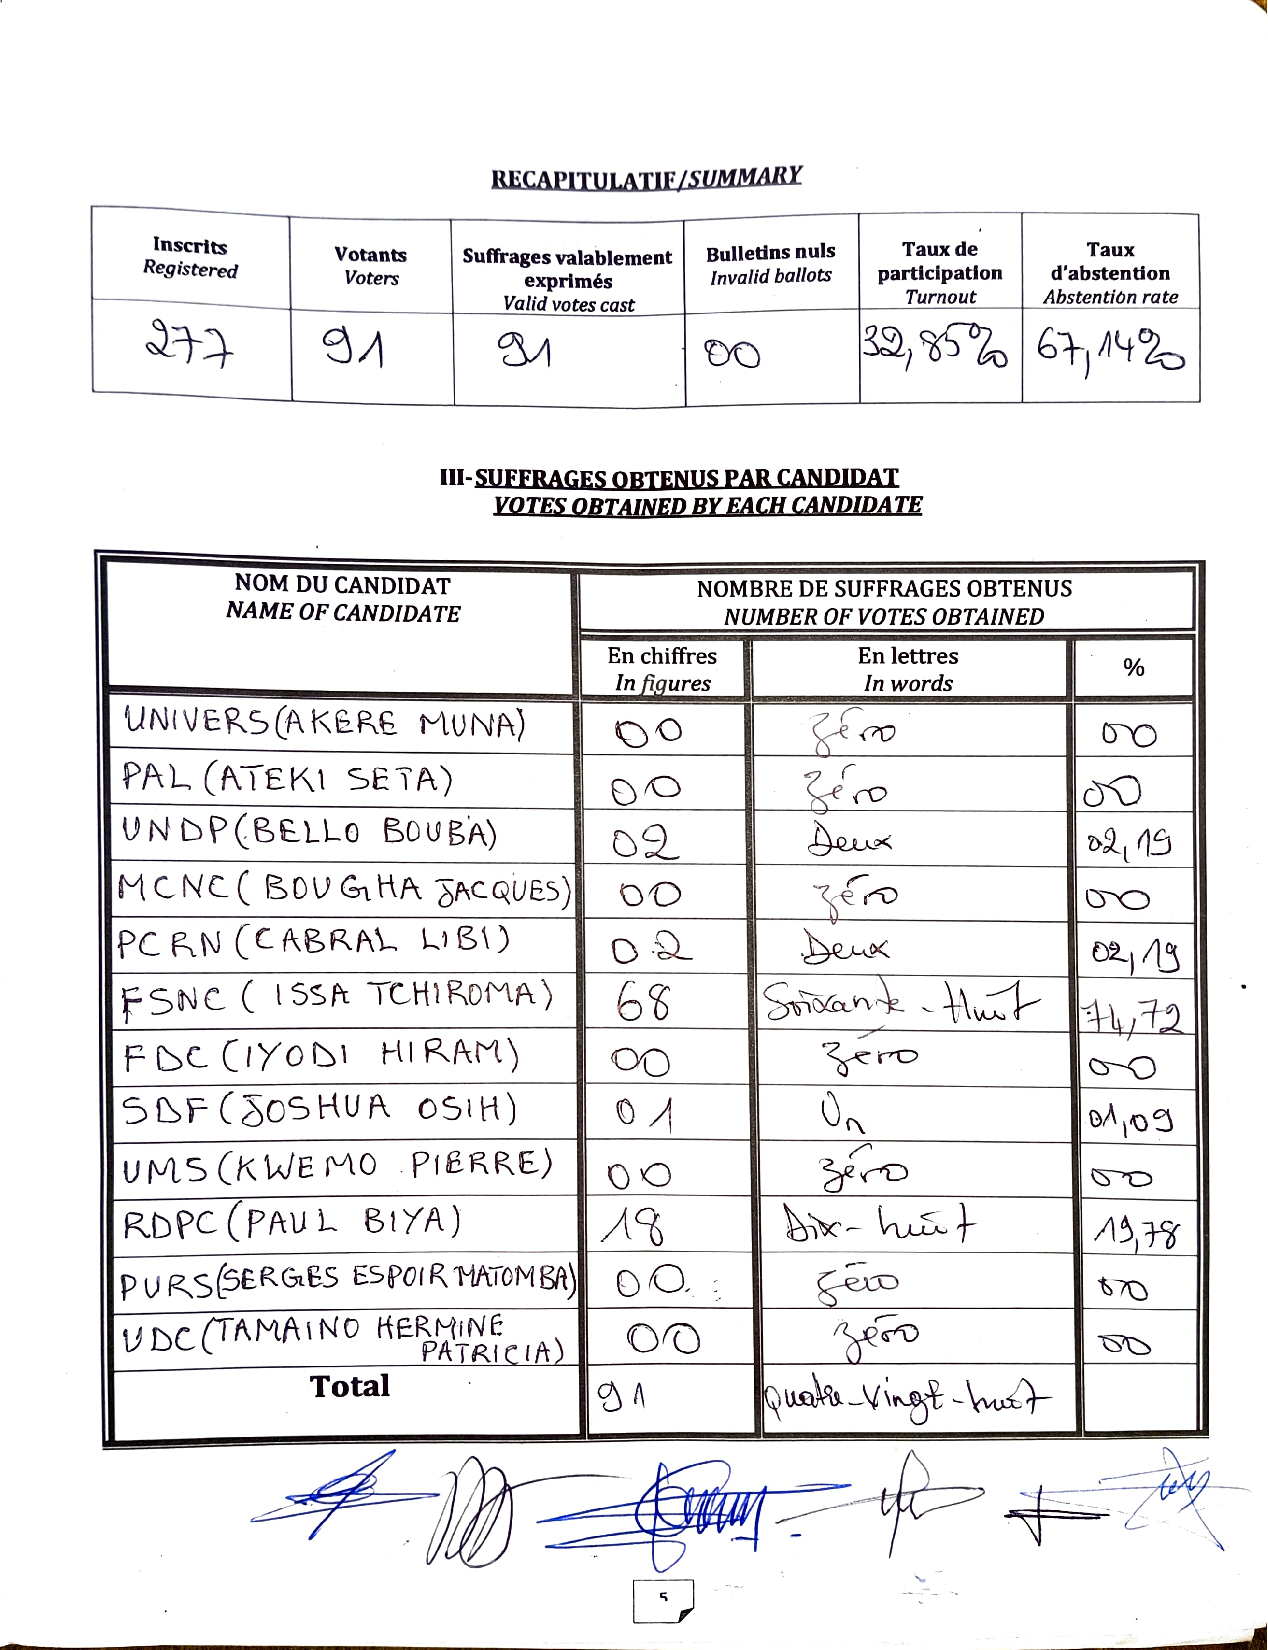 RECAPITULATIF/SUMMARY
Inscrits
Registered
Votants
Voters
Suffrages valablement
exprimés
Valid votes cast
Bulletins nuls
Invalid ballots
Taux de
participation
Turnout
Taux
d'abstention
Abstention rate
277 91 91 00 32,85% 67,14%
III-SUFFRAGES OBTENUS PAR CANDIDAT
VOTES OBTAINED BY EACH CANDIDATE
NOM DU CANDIDAT
NAME OF CANDIDATE
NOMBRE DE SUFFRAGES OBTENUS
NUMBER OF VOTES OBTAINED
En chiffres
In figures
En lettres
In words
%
UNIVERS(AKERE MUNA) 00 Zéro 00
PAL(ATEKI SETA) 00 Zéro 00
UNDP(BELLO BOUBA) 02 Deux 02,19
MCNC(BOUGHA JACQUES) 00 Zéro 00
PCRN(CABRAL LIBI) 02 Deux 02,19
FSNC(ISSA TCHIROMA) 68 Soixante-Huit 74,72
FDC(IYODI HIRAM) 00 Zéro 00
SDF(JOSHUA OSIH) 01 Un 01,09
UMS(KWEMO PIERRE) 00 Zéro 00
RDPC(PAUL BIYA) 18 Dix-huit 19,78
PURS(SERGES ESPOIR MATOMBA) 00 Zéro 00
UDC(TAMAINO HERMINE
PATRICIA) 00 Zéro 00
Total 91 Quatre-Vingt-huit
5